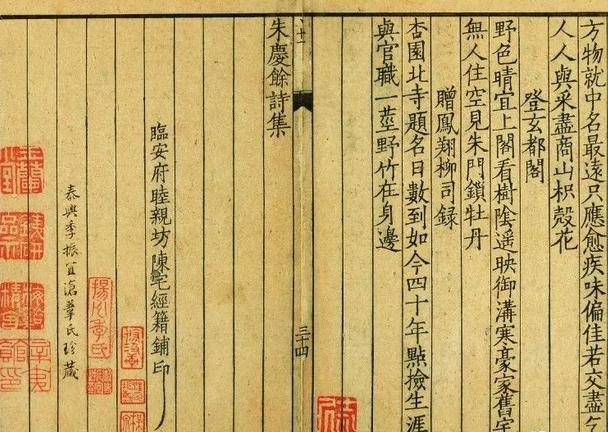 方物就中名最遠只應愈疾味偏佳若交盡乞
人人與采盡商山枳殼花
登玄都閣
野色晴宜上閣看樹陰遥映御溝寒豪家舊宅
無人住空見朱門鎖牡丹
贈鳳翔柳司錄
杏園北寺題名日數到如今四十年點撿生涯
與官職一莖野竹在身邊
三十四
朱慶餘詩集
臨安府睦親坊陳宅經籍鋪印
揚州季氏
泰興季振宜滄葦氏珍藏